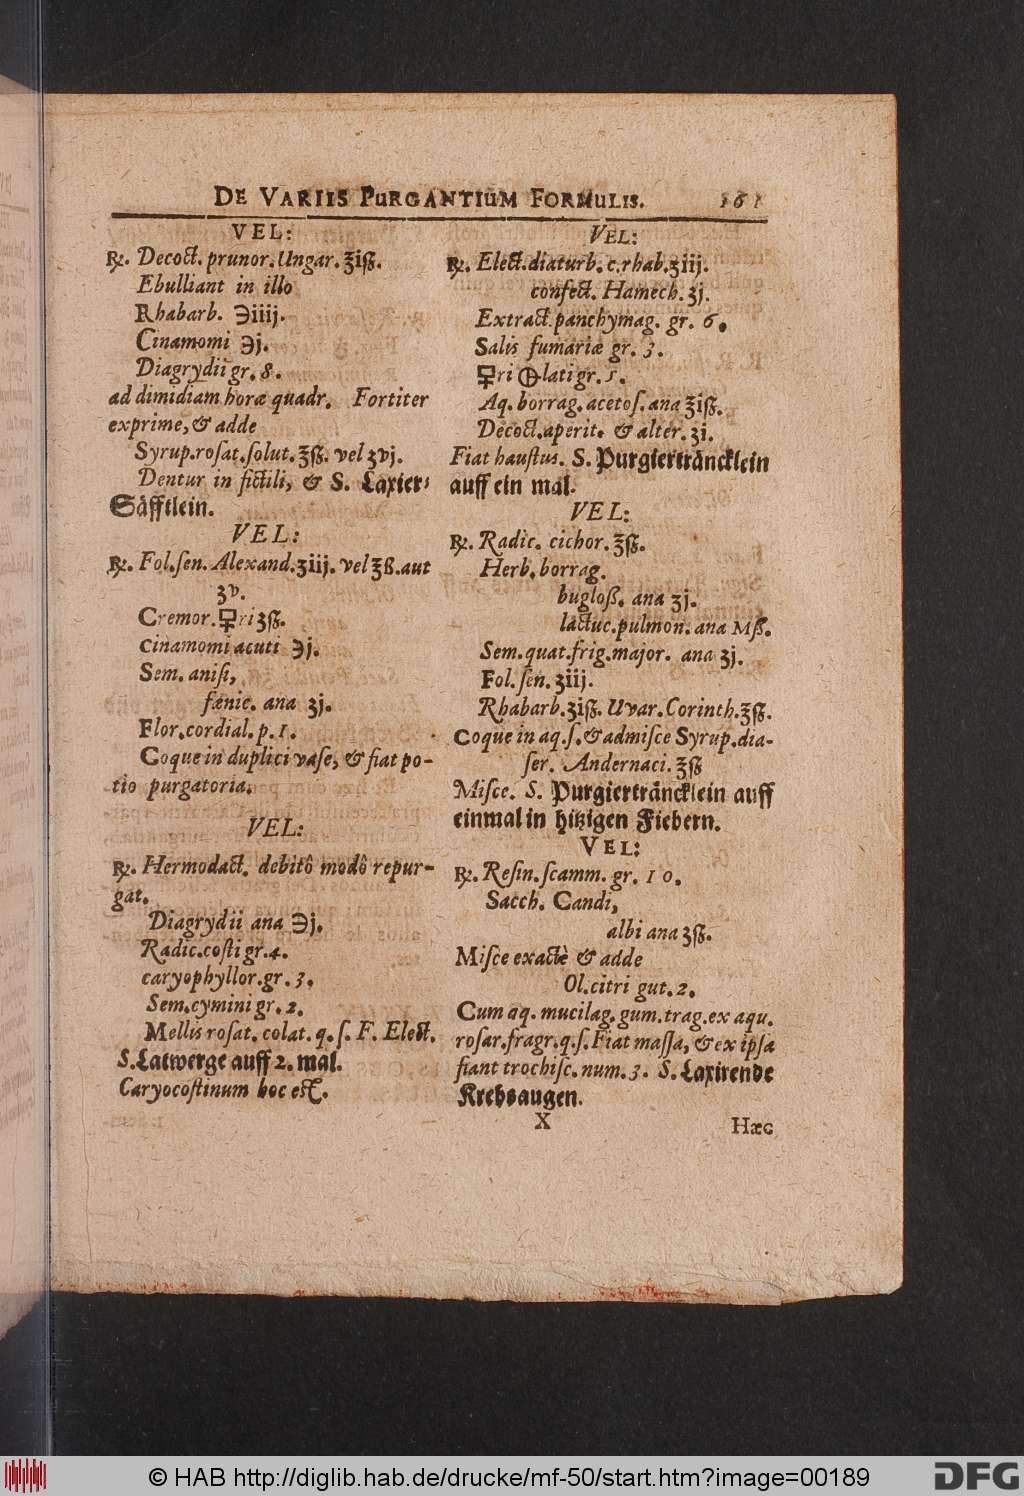 DE VARIIS PURGANTIUM FORMULIS. 161
VEL:
℞. Decoct. prunor. Ungar. ℥iß.
Ebulliant in illo
Rhabarb. ℈iiij.
Cinamomi ℈j.
Diagrydii gr. 8.
ad dimidiam horæ quadr. Fortiter
exprime, & adde
Syrup. rosat. solut. ℥ß. vel ʒvj.
Dentur in fictili, & S. Laxier-
Säfftlein.
VEL:
℞. Fol. sen. Alexand. ʒiij. vel ℥ß. aut
ʒv.
Cremor. 🜿ri ʒß.
Cinamomi acuti ℈j.
Sem. anisi,
fœnic. ana ʒj.
Flor. cordial. p. 1.
Coque in duplici vase, & fiat po-
tio purgatoria.
VEL:
℞. Hermodact. debitô modô repur-
gat.
Diagrydii ana ℈j.
Radic. costi gr. 4.
caryophyllor. gr. 3.
Sem. cymini gr. 2.
Mellis rosat. colat. q. ſ. F. Elect.
S. Latwerge auff 2. mal.
Caryocostinum hoc est.
VEL:
℞. Elect. diaturb. c. rhab. ʒiij.
confect. Hamech. ʒj.
Extract. panchymag. gr. 6.
Salis fumariæ gr. 3.
🜿ri 🜨lati gr. 5.
Aq. borrag. acetoſ. ana ℥iß.
Decoct. aperit. & alter. ʒi.
Fiat haustus. S. Purgierträncklein
auff ein mal.
VEL:
℞. Radic. cichor. ℥ß.
Herb. borrag.
bugloß. ana ʒj.
lactuc. pulmon. ana Mß.
Sem. quat. frig. major. ana ʒj.
Fol. sen. ʒiij.
Rhabarb. ʒiß. Uvar. Corinth. ℥ß.
Coque in aq. ſ. & admisce Syrup. dia-
ser. Andernaci. ℥ß
Misce. S. Purgierträncklein auff
einmal in hitzigen Fiebern.
VEL:
℞. Resin. scamm. gr. 10.
Sacch. Candi,
albi ana ʒß.
Misce exactè & adde
Ol. citri gut. 2.
Cum aq. mucilag. gum. trag. ex aqu.
rosar. fragr. q. ſ. Fiat massa, & ex ipsa
fiant trochisc. num. 3. S. Laxirende
Krebsaugen.
X Hæc
© HAB http://diglib.hab.de/drucke/mf-50/start.htm?image=00189
DFG